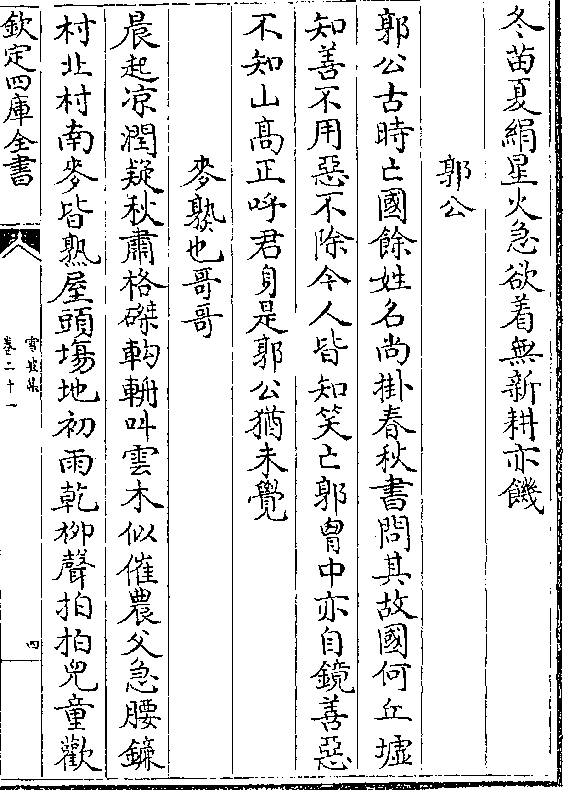 冬苗夏絹星火急欲着無新耕亦饑
郭公
郭公古時亡國餘姓名尚掛春秋書問其故國何丘墟
知善不用惡不除令人皆知笑亡郭胷中亦自鏡善惡
不知山髙正呼君身是郭公猶未覺
麥熟也哥哥
晨起凉潤疑秋肅格磔軥輈叫雲木似催農父急腰鐮
村北村南麥皆熟屋頭塲地初雨乾柳聲拍拍兒童歡
欽定四庫全書
雪坡集
卷二十一
四